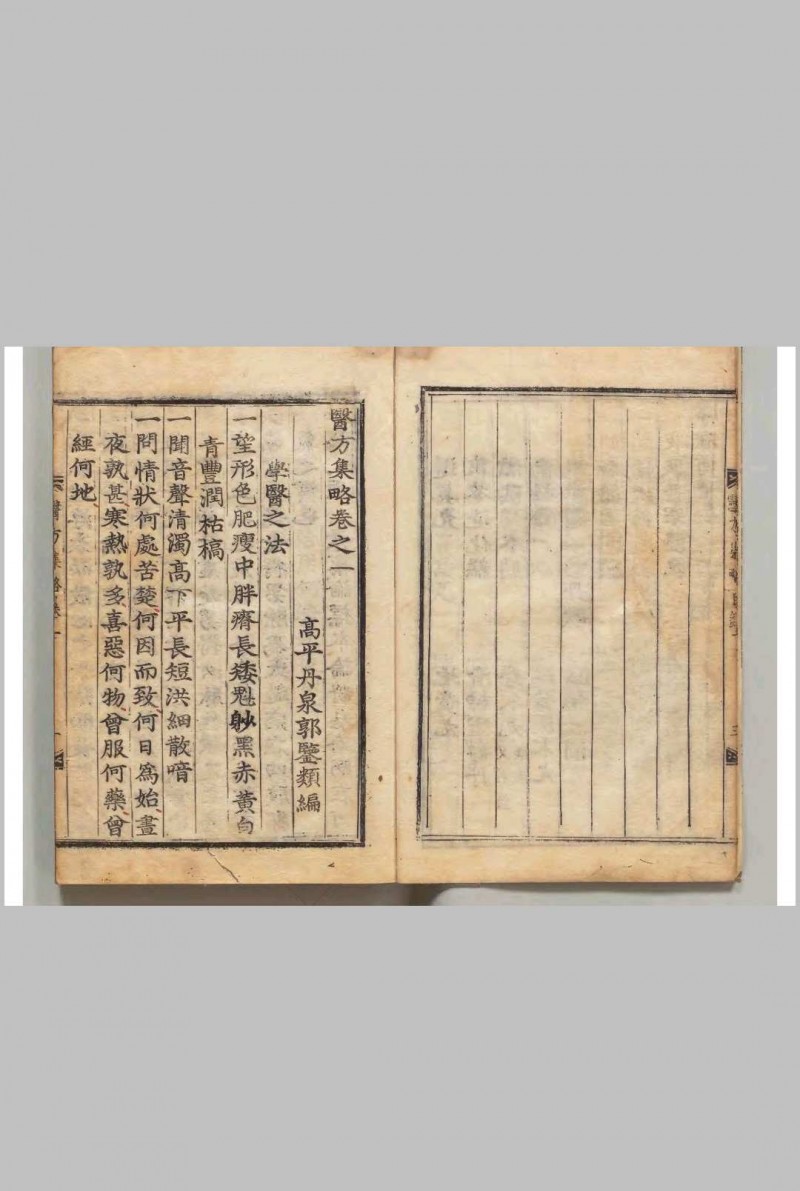 醫方集略卷之一
高平丹泉郭鑒類編
學醫之法
一望形色肥瘦中胖瘠長矮魁𨈘黑赤黃白
青豐潤枯槁
一聞音聲清濁高下平長短洪細散喑
一問情狀何處苦楚何因而致何日爲始晝
夜孰甚寒熱孰多喜惡何物曾服何藥曾
經何地
醫方集略卷一